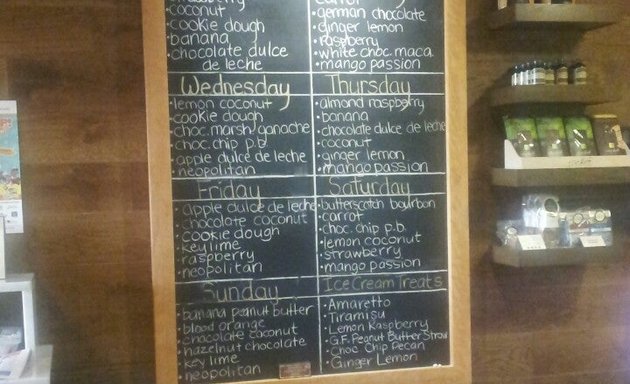 coconut
cookie dough
banana
chocolate dulce
de leche
carrot
german chocolate
ginger lemon
raspberry
white choc. maca.
mango passion
Wednesday
lemon coconut
cookie dough
choc. marsh. ganache
choc. chip p.b.
apple dulce de leche
neopolitan
Thursday
almond raspberry
banana
chocolate dulce de leche
coconut
ginger lemon
mango passion
Friday
apple dulce de leche
chocolate coconut
cookie dough
key lime
raspberry
neopolitan
Saturday
butterscotch bourbon
carrot
choc. chip p.b.
lemon coconut
strawberry
mango passion
Sunday
banana peanut butter
blood orange
chocolate coconut
hazelnut chocolate
key lime
neopolitan
Ice Cream Treats
Amaretto
Tiramisu
Lemon Raspberry
G.F. Peanut Butter Straw
Choc. Chip Pecan
Ginger Lemon